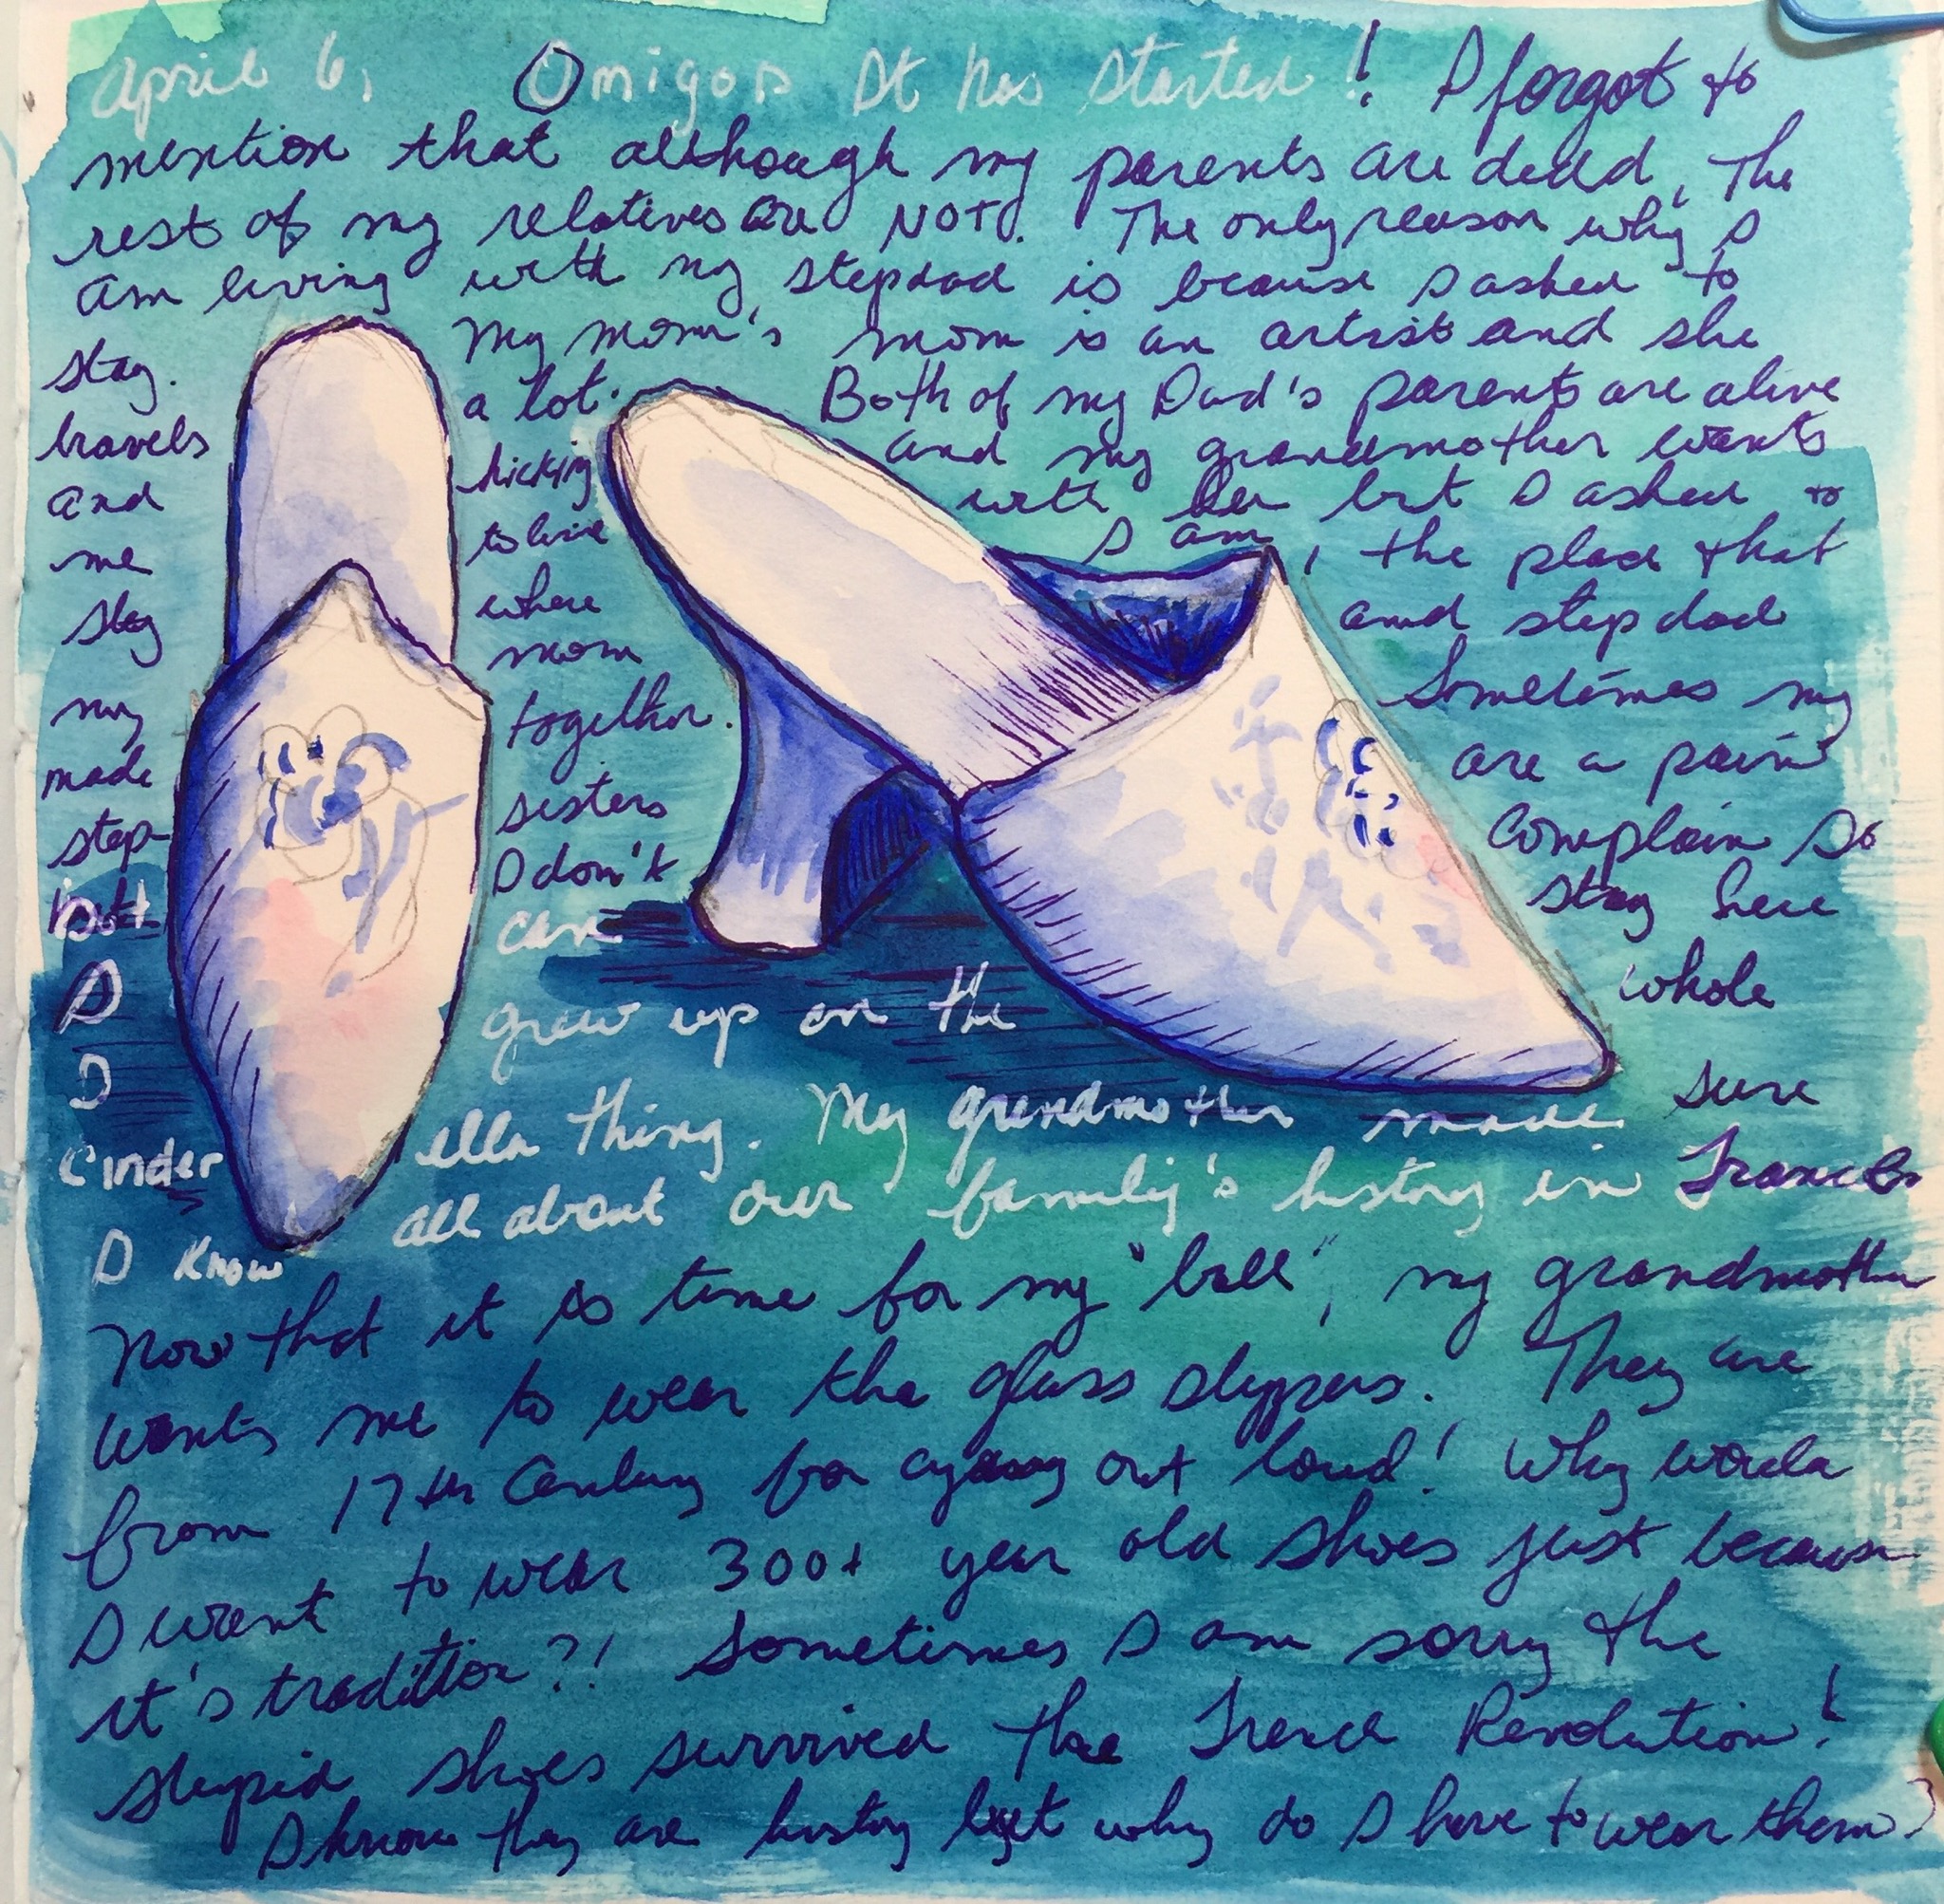 April 6, Omigos It has started! I forgot to
mention that although my parents are dead, The
rest of my relatives are NOT. The only reason why I
am living with my stepdad is because I asked to
stay. My mom's mom is an artist and she
travels a lot. Both of my Dad's parents are alive
and kicking and my grandmother wants
me to live with her but I asked to
stay where I am, the place that
my mom and stepdad
made together. Sometimes my
step- sisters are a pain
but I don't complain so
I can stay here
I grew up on the whole
Cinder ella thing. My grandmother made sure
I know all about our family's history in France
Now that it is time for my "ball", my grandmother
wants me to wear the glass slippers. They are
from 17th Century for crying out loud! Why would
I want to wear 300+ year old shoes just because
it's tradition?! Sometimes I am sorry the
stupid shoes survived the French Revolution!
I know they are history but why do I have to wear them?